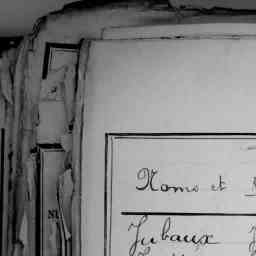 Noms et
NU
Jubaux